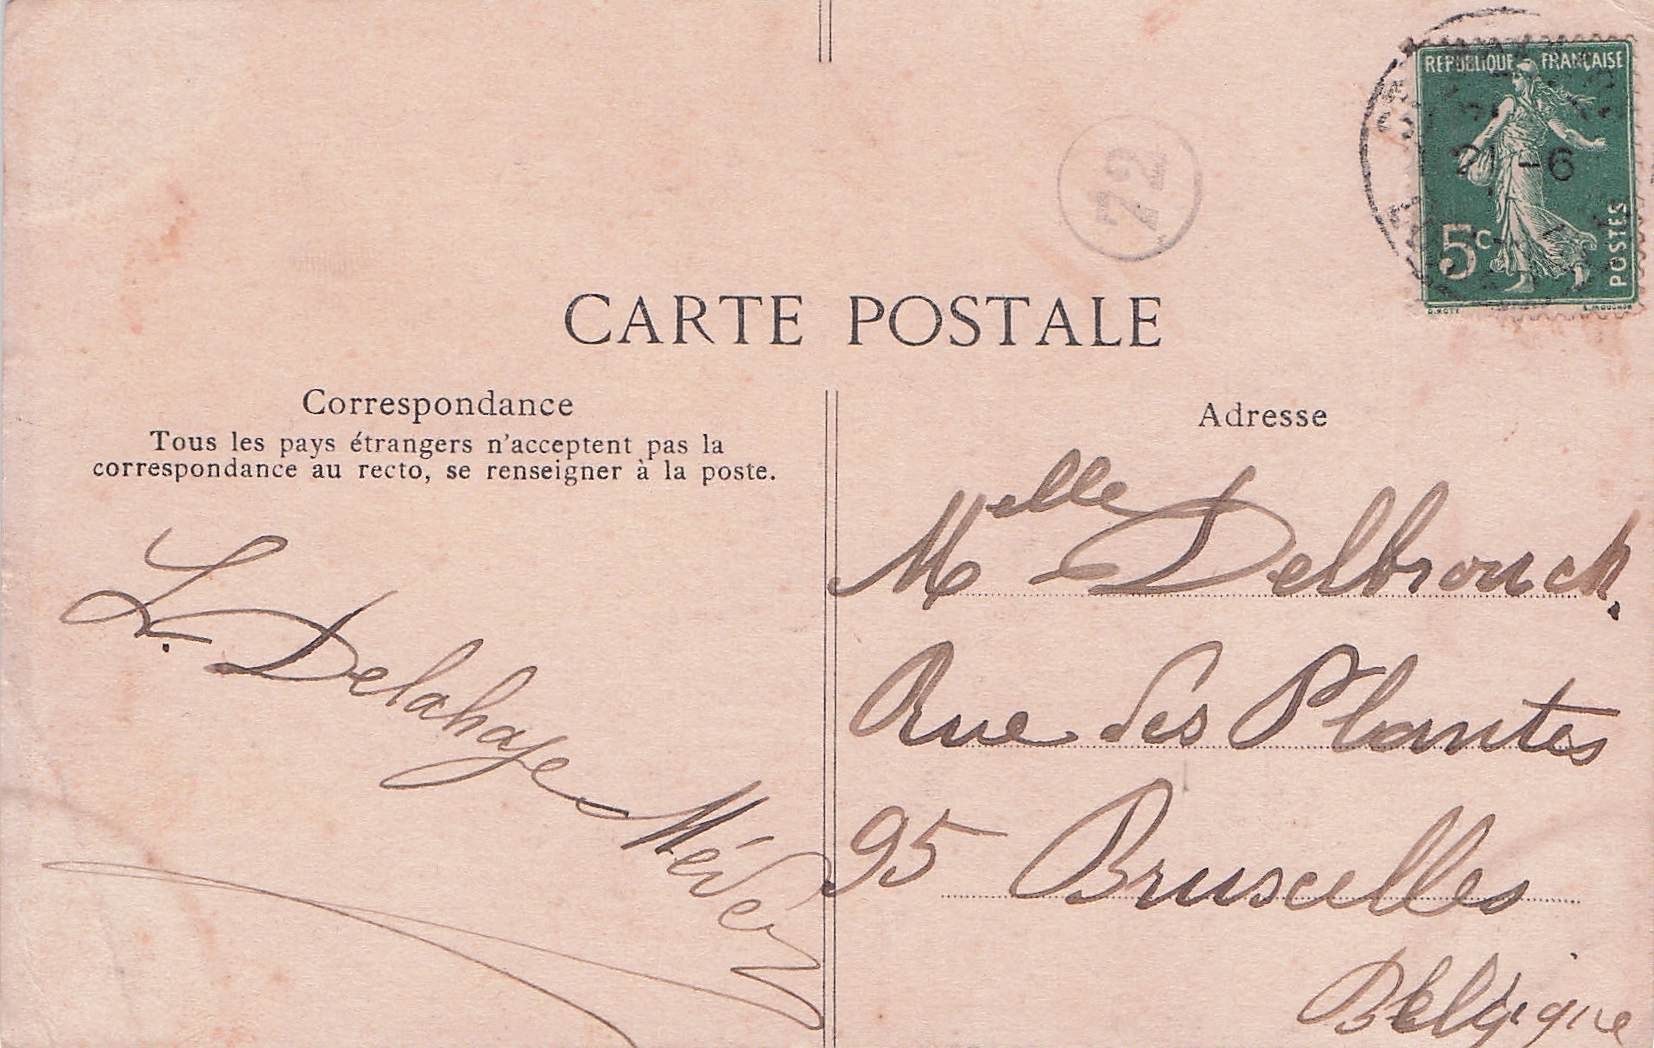 REPUBLIQUE FRANÇAISE
21 -6
5c
POSTES
22
CARTE POSTALE
Correspondance
Tous les pays étrangers n'acceptent pas la
correspondance au recto, se renseigner à la poste.
L. Delahaye
Adresse
Melle Delbrouck.
Rue des Plantes
95 Bruxelles
Belgique